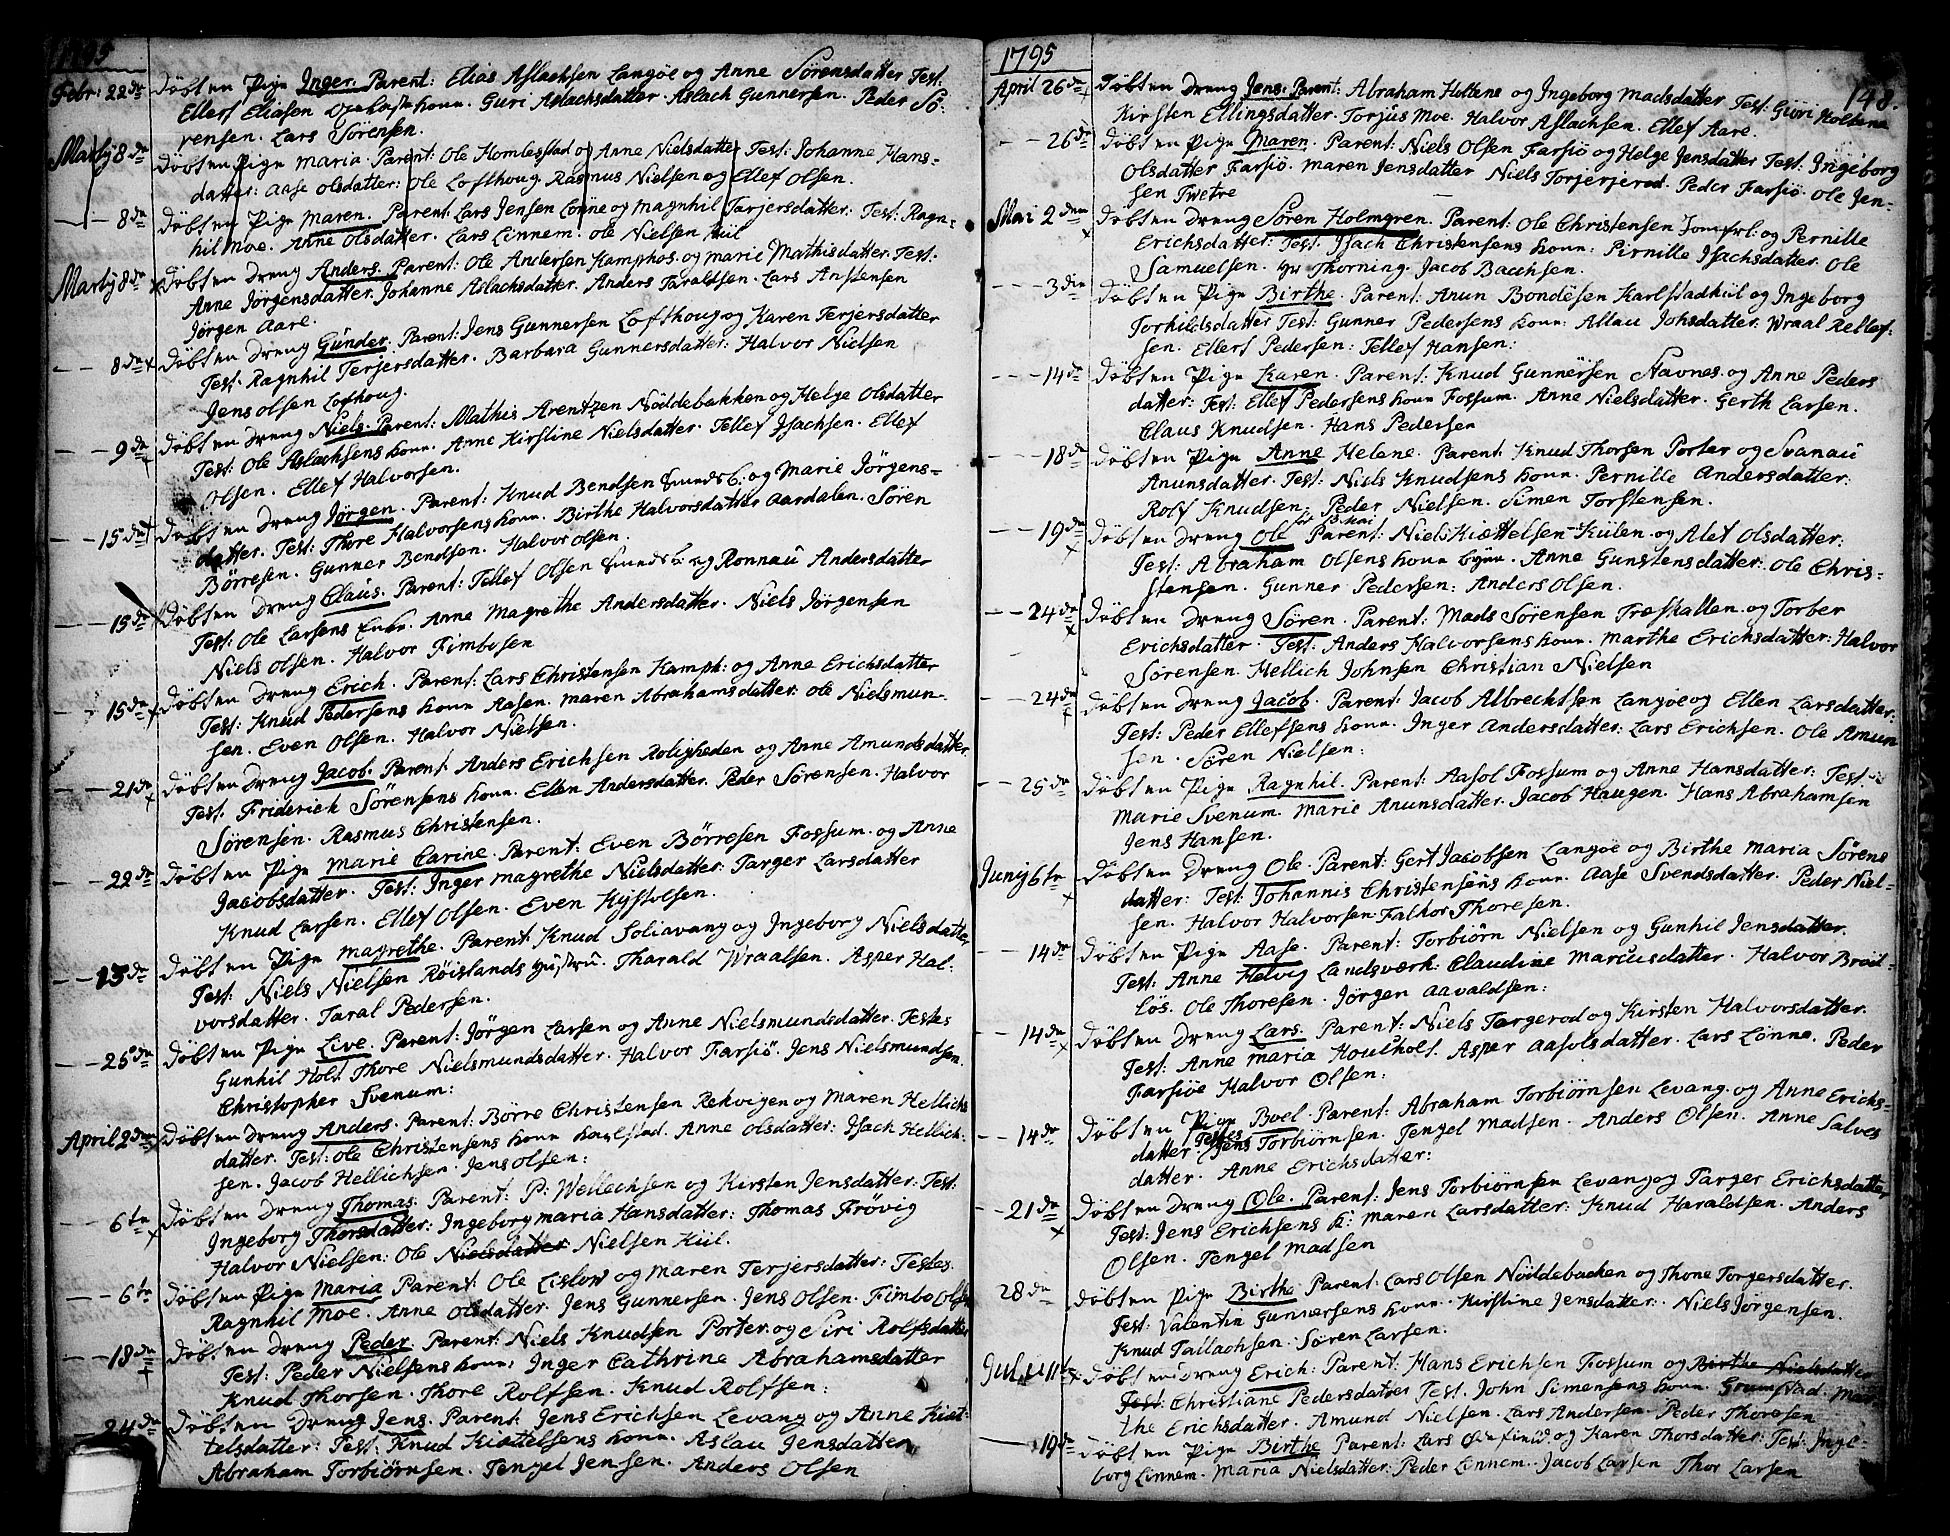 1795
Febr: 22de Døbt en Pige Inger. Parent: Elias Aslachsen Langøe og Anne Sørensdatter Test:
Ellef Eliasen kone. Guri Aslachsdatter. Aslach Gunnersen. Peder Sø-
rensen. Lars Sørensen.
Martij 8de Døbt en Pige Maria. Parent: Ole Homlestad og Anne Nielsdatter Test: Johanne Hans-
datter: Aase Olsdatter: Ole Lofthoug. Rasmus Nielsen og Ellef Olsen.
8de Døbt en Pige Maren. Parent. Lars Jensen Lønne og Magnhil Tarjersdatter: Test: Ragn-
hil Moe. Anne Olsdatter. Lars Linnem. Ole Nielsen Kiil
Martij 8de Døbt en Dreng Anders. Parent: Ole Andersen Kamphos. og Marie Mathisdatter. Test:
Anne Jørgensdatter. Johanne Aslachsdatter. Anders Taraldsen. Lars Anstensen
Jørgen Aare.
8de Døbt en Dreng Gunder. Parent: Jens Gunnersen Lofthoug og Karen Terjersdatter
Test: Ragnhil Terjersdatter. Barbara Gunnersdatter: Halvor Nielsen
Jens Olsen Lofthoug.
9de Døbt en Dreng Niels. Parent: Mathis Arentzen Nøddebakken og Helge Olsdatter
Test: Ole Aslachsens kone. Anne Kirstine Nielsdatter. Tellef Isachsen. Ellef
Olsen. Ellef Halvorsen.
15de Døbt en Dreng Jørgen. Parent: Knud Bendsen Smedsb. og Marie Jørgens-
datter. Test: Thore Halvorsens kone. Birthe Halvorsdatter Aardalen. Søren
Børresen. Gunner Bendsen. Halvor Olsen.
15de Døbt en Dreng Claus. Parent: Tellef Olsen Smedsb. og Ronnau Andersdatter
Test: Ole Larsens Enke. Anne Magrethe Andersdatter. Niels Jørgensen
Niels Olsen. Halvor Fimbosen
15de Døbt en Dreng Erich. Parent: Lars Christensen Kamph: og Anne Erichsdatter
Test: Knud Pedersens kone Aasen. Maren Abrahamsdatter: Ole Nielsmun-
sen. Even Olsen. Halvor Nielsen.
21de Døbt en Dreng Jacob. Parent: Anders Erichsen Roligheden og Anne Amundsdatter
Test: Friderich Sørensens kone. Ellen Andersdatter. Peder Sørensen. Halvor
Sørensen. Rasmus Christensen.
22de Døbt en Pige Marie Carine. Parent: Even Børresen Fossum. og Anne
Jacobsdatter. Test: Inger Magrethe Nielsdatter: Targer Larsdatter
Knud Larsen. Ellef Olsen. Even Kistolsen.
13de Døbt en Pige Magrethe. Parent: Knud Soliavang og Ingeborg Nielsdatter
Test: Niels Nielsen Røislands Hustru. Tharald Wraalsen. Asper Hal-
vorsdatter. Taral Pedersen.
25de Døbt en Pige Live. Parent: Jørgen Larsen og Anne Nielsmundsdatter. Testes
Gunhil Holt Thore Nielsmundsdatter. Halvor Farsiö. Jens Nielsmundsen.
Christopher Svenum:
April 2den Døbt en Dreng Anders. Parent: Børre Christensen Rekvigen og Maren Hellichs
datter. Test: Ole Christensens kone Karlstad. Anne Olsdatter: Isach Hellich-
sen. Jacob Hellichsen. Jens Olsen:
6te Døbt en Dreng Thomas. Parent: P: Wellechsen og Kirsten Jensdatter: Test:
Ingeborg Thorsdatter: Ingeborg Maria Hansdatter: Thomas Frövig
Halvor Nielsen: Ole Nielsdatter Nielsen Kiil.
6te Døbt en Pige Maria Parent: Ole Lislow og Maren Terjersdatter. Testes.
Ragnhil Moe. Anne Olsdatter. Jens Gunnersen. Jens Olsen. Fimbo Olsen
18de Døbt en Dreng Peder. Parent: Niels Knudsen Porter. og Siri Rolfsdatter
Test: Peder Nielsens kone: Inger Cathrine Abrahamsdatter
Knud Thorsen. Thore Rolfsen. Knud Rolfsen:
24de Døbt en Dreng Jens. Parent: Jens Erichsen Levang og Anne Kiæt-
telsdatter: Test: Knud Kiættelsens kone. Aslau Jensdatter
Abraham Torbiörnsen. Tengel Jensen. Anders Olsen
1795
148.
April 26de Døbt en Dreng Jens. Parent: Abraham Holtene og Ingeborg Madsdatter Test: Giöri Holtene
Kirsten Ellingsdatter. Torjus Moe. Halvor Aslachsen. Ellef Aare.
26de Døbt en Pige Maren. Parent: Niels Olsen Farsiö og Helge Jensdatter Test: Ingeborg
Olsdatter Farsiö. Maren Jensdatter Niels Torjerjerod. Peder Farsiö. Ole Jen-
sen Twetre
Mai 2den Døbt en Dreng Søren Holmgren. Parent: Ole Christensen Jomfrl: og Pernille
Erichsdatter: Test: Isach Christensens kone: Pirnille Isachsdatter. Ole
Samuelsen. Hr Thorning. Jacob Bauhsen.
3die Døbt en Pige Birthe. Parent: Anun Bondesen Karlstadkiil og Ingeborg
Torhildsdatter Test: Gunner Pedersens kone: Allau Johsdatter. Wraal Rellef-
sen. Ellef Pedersen: Tellef Hansen:
14de Døbt en Pige Karen. Parent: Knud Gunnersen Stavnes. og Anne Peders
datter: Test: Ellef Pedersens kone Fossum. Anne Nielsdatter. Gerth Larsen.
Claus Knudsen. Hans Pedersen
18de Døbt en Pige Anne Helene. Parent Knud Thorsen Porter og Svanau
Anunsdatter. Test: Niels Knudsens kone. Pernille Andersdatter:
Rolf Knudsen: Peder Nielsen. Simen Torstensen.
19de Døbt en Dreng Ole Parent: Niels Kiættelsen Kiilen og Alet Olsdatter:
Test: Abraham Olsens kone Byen. Anne Gunstensdatter: Ole Chris-
stensen. Gunner Pedersen: Anders Olsen.
24de Døbt en Dreng Søren. Parent: Mads Sørensen Træskallen. og Torber
Erichsdatter. Test: Anders Halvorsens kone. Marthe Erichsdatter: Halvor
Sørensen. Mellich Johnsen Christian Nielsen
24de Døbt en Dreng Jacob. Parent: Jacob Albrechtsen Langøe og Ellen Larsdatter:
Test: Peder Ellefsens kone. Inger Andersdatter: Lars Erichsen. Ole Amun
sen. Søren Nielsen:
25de Døbt en Pige Ragnhil. Parent: Aasol Fossum og Anne Hansdatter: Test:
Marie Svenum. Marie Anunsdatter. Jacob Haugen. Hans Abrahamsen
Jens Hansen.
Junij 6te Døbt en Dreng Ole. Parent: Gert Jacobsen Langøe og Birthe Maria Sørens
datter: Test: Johannis Christensens kone. Aase Svendsdatter. Peder Niel-
sen. Halvor Halvorsen Falkor Thoresen.
14de Døbt en Pige Aase. Parent: Torbiörn Nielsen og Gunhil Jensdatter.
Test: Anne Helvig Landsværk: Claudine Marcusdatter. Halvor Bröd-
løs. Ole Thoresen. Jörgen Aavaldsen:
14de Døbt en Dreng Lars. Parent: Niels Targerod og Kirsten Halvorsdatter.
Test: Anne Maria Houlholt. Asper Aasolsdatter. Lars Lönne. Peder
Farsiöe Halvor Olsen:
14de Døbt en Pige Boel. Parent: Abraham Torbiörnsen Levang. og Anne Erichs-
datter. Testes Jens Torbiörnsen. Tengel Madsen. Anders Olsen. Anne Salves
datter. Anne Erichsdatter:
21de Døbt en Dreng Ole. Parent: Jens Torbiörnsen Levang og Targer Erichsdatter
Test: Jens Erichsens K: Maren Larsdatter: Knud Haraldsen. Anders
Olsen. Tengel Madsen
28de Døbt en Pige Birthe Parent: Lars Olsen Nøddebacken og Thone Torgersdatter.
Test: Valentin Gunnersens kone. Kirstine Jensdatter: Niels Jørgensen.
Knud Tallachsen. Søren Larsen.
Juli 11te Døbt en Dreng Erich: Parent: Hans Erichsen Fossum og Birthe Nielsdatter
Test: Christiane Pedersdatter Test. John Simensens kone Grumstad. Mar
the Erichsdatter. Amund Nielsen. Lars Andersen. Peder Thoresen
19de Døbt en Pige Birthe Parent: Lars og Karen Thorsdatter: Test: Inge-
borg Linnem. Maria Nielsdatter: Peder Linnem. Jacob Larsen Thor Larsen